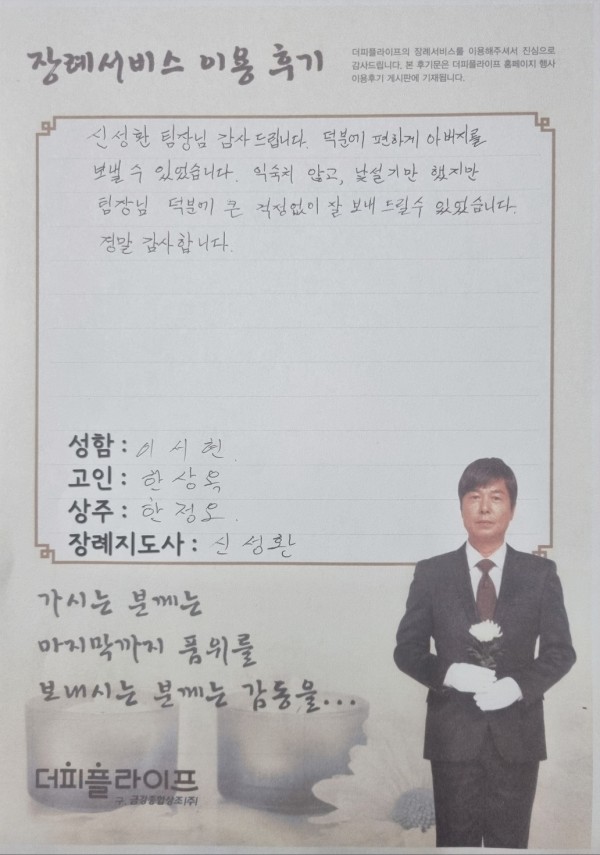 장례서비스 이용 후기
더피플라이프의 장례서비스를 이용해주셔서 진심으로
감사드립니다. 본 후기문은 더피플라이프 홈페이지 행사
이용후기 게시판에 기재됩니다.
신성환 팀장님 감사드립니다. 덕분에 편하게 아버지를
보낼 수 있었습니다. 익숙치 않고, 낯설기만 했지만
팀장님 덕분에 큰 걱정없이 잘 보내 드릴수 있었습니다.
정말 감사합니다.
성함 : 이서현.
고인 : 한상욱
상주 : 한정오.
장례지도사 : 신성환
가시는 분께는
마지막까지 품위를
보내시는 분께는 감동을...
더피플라이프
구. 금강종합상조(주)